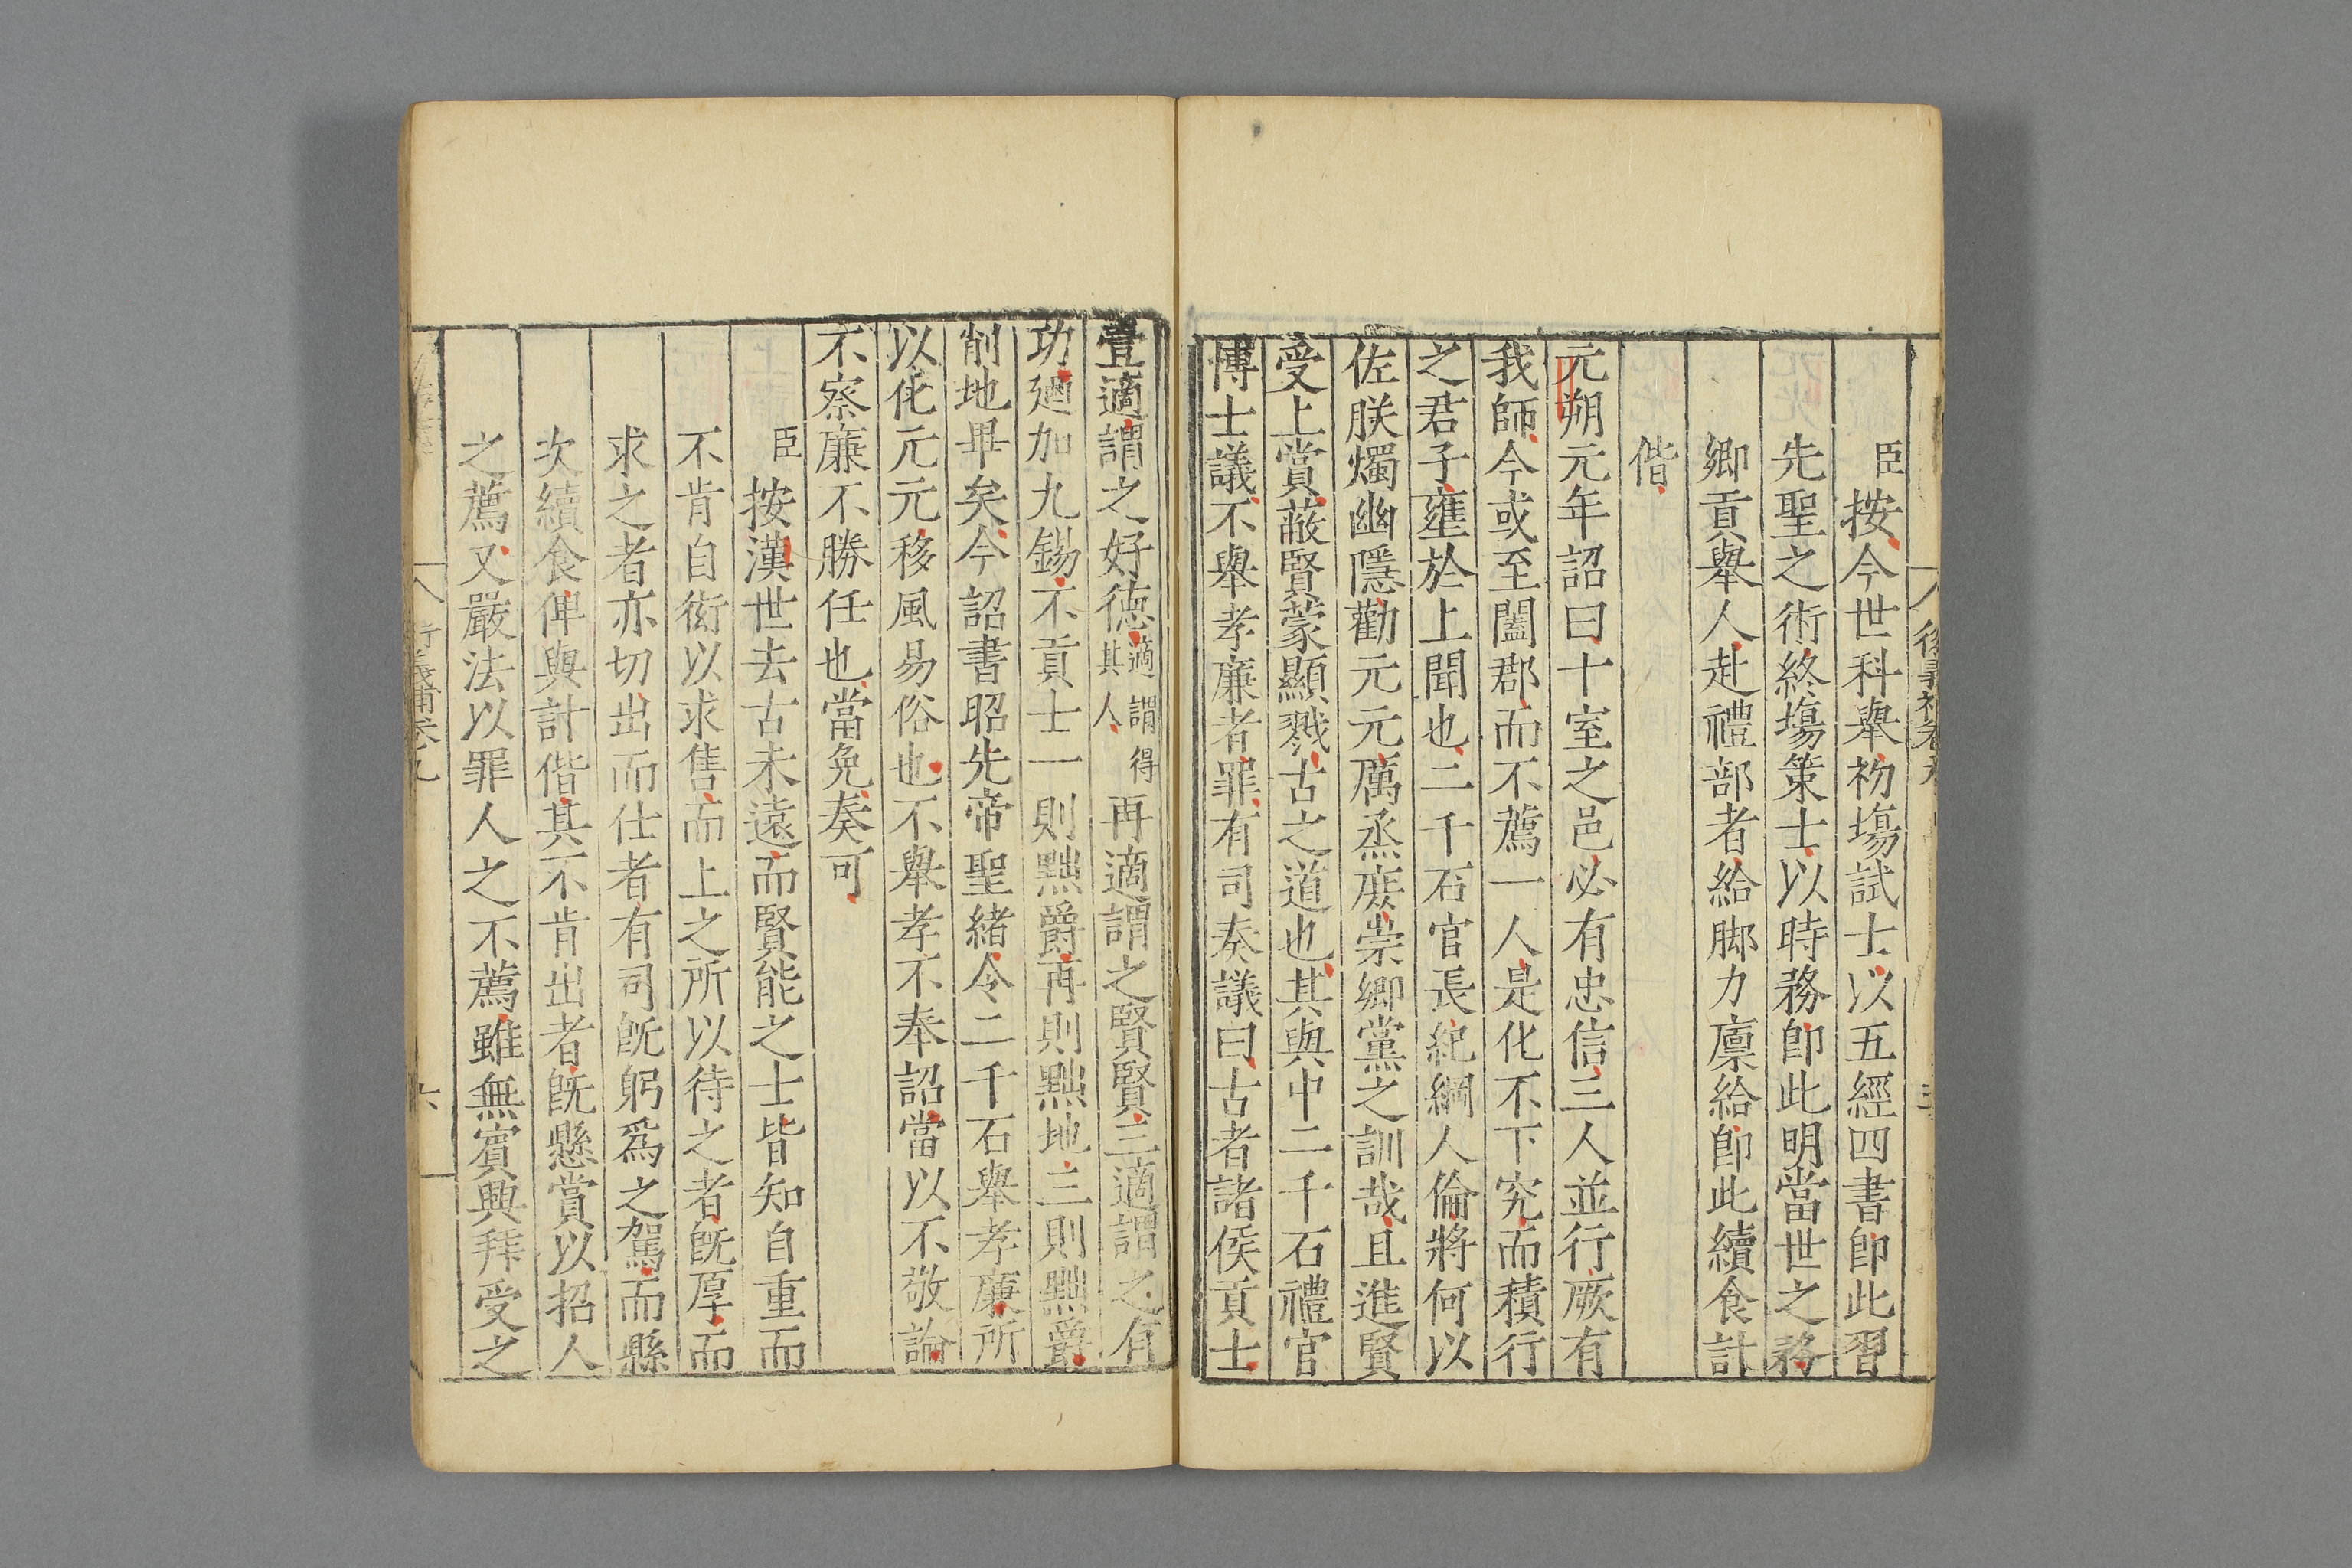 臣按今世科舉初塲試士以五經四書卽此習
先聖之術終塲策士以時務卽此明當世之務
鄉貢舉人赴禮部者給脚力廪給卽此續食計
偕
元朔元年詔曰十室之邑必有忠信三人並行厥有
我師今或至闔郡而不薦一人是化不下究而積行
之君子壅於上聞也二千石官長紀綱人倫將何以
佐朕燭幽隱勸元元厲烝庶崇鄉黨之訓哉且進賢
受上賞蔽賢蒙顯戮古之道也其與中二千石禮官
博士議不舉孝廉者罪有司奏議曰古者諸侯貢士
壹適謂之好德適謂得其人再適謂之賢賢三適謂之有
功廼加九錫不貢士一則黜爵再則黜地三則黜爵
削地畢矣今詔書昭先帝聖緒令二千石舉孝廉所
以化元元移風易俗也不舉孝不奉詔當以不敬論
不察廉不勝任也當免奏可
臣按漢世去古未遠而賢能之士皆知自重而
不肯自衒以求售而上之所以待之者旣厚而
求之者亦切出而仕者有司旣躬爲之駕而縣
次續食俾與計偕其不肯出者旣懸賞以招人
之薦又嚴法以罪人之不薦雖無賓興拜受之
衍義補卷九
六